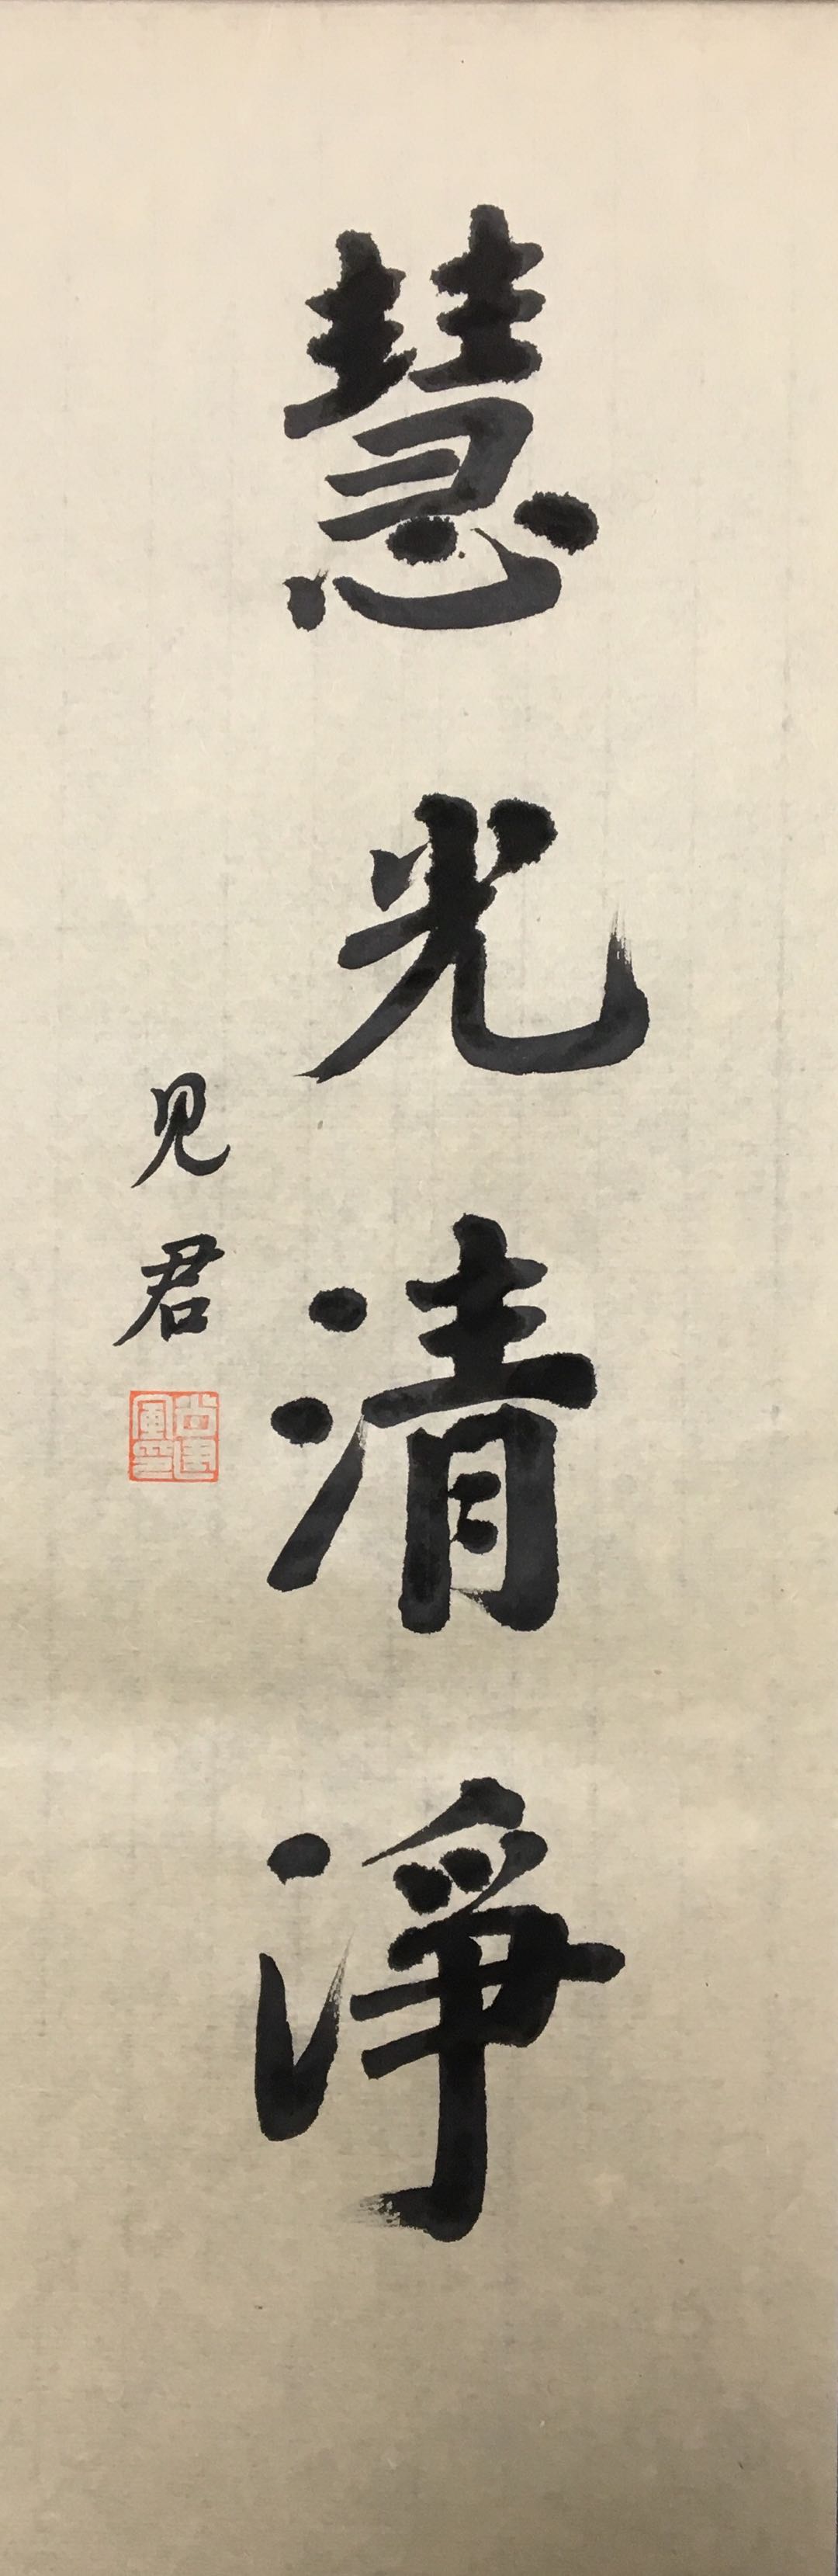 慧光清淨
见君